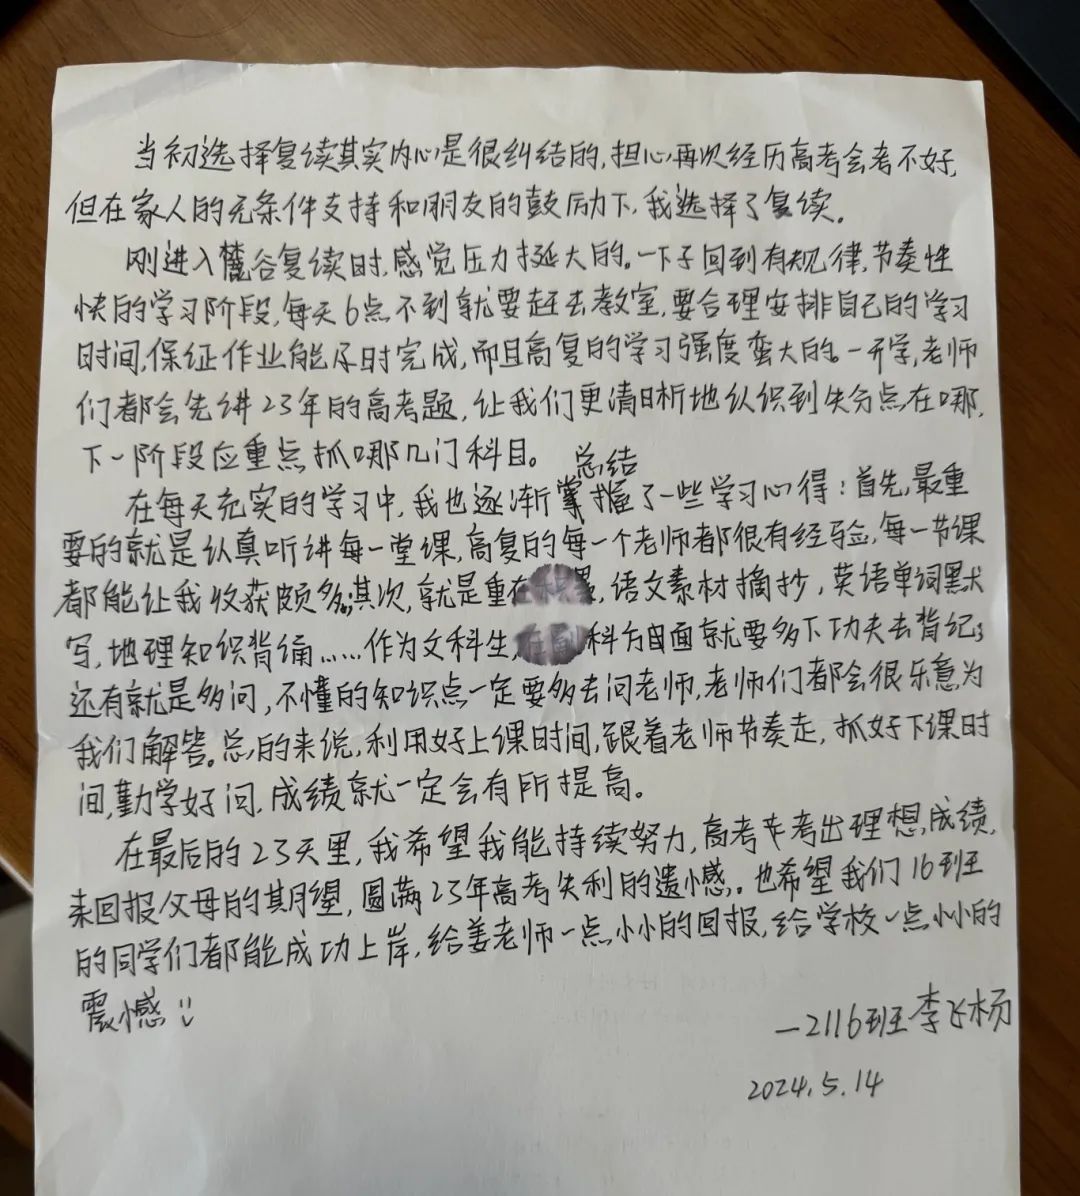 当初选择复续其实内心是很纠结的，担心再次经历高考会考不好，
但在家人的无条件支持和朋友的鼓励下，我选择了复续。
刚进入麓谷复续时，感觉压力挺大的。一下子回到有规律，节奏性
快的学习阶段，每天6点不到就要赶去教室，要合理安排自己的学习
时间，保证作业能及时完成，而且高复的学习强度蛮大的。一开学，老师
们都会先讲23年的高考题，让我们更清晰地认识到失分点在哪，
下一阶段应重点抓哪几门科目。
总结
在每天充实的学习中，我也逐渐掌握了一些学习心得：首先，最重
要的就是认真听讲每一堂课，高复的每一个老师都很有经验，每一节课
都能让我收获颇多；其次，就是重在积累，语文素材摘抄，英语单词默
写，地理知识背诵……作为文科生，在副科方面就要多下功夫去背纪；
还有就是多问，不懂的知识点一定要多去问老师，老师们都会很乐意为
我们解答。总的来说，利用好上课时间，跟着老师节奏走，抓好下课时
间，勤学好问，成绩就一定会有所提高。
在最后的23天里，我希望我能持续努力，高考中考出理想成绩，
来回报父母的期望，圆满23年高考失利的遗憾。也希望我们16班
的同学们都能成功上岸，给姜老师一点小小的回报，给学校一点小小的
震撼！！
—2116班 李飞杨
2024.5.14